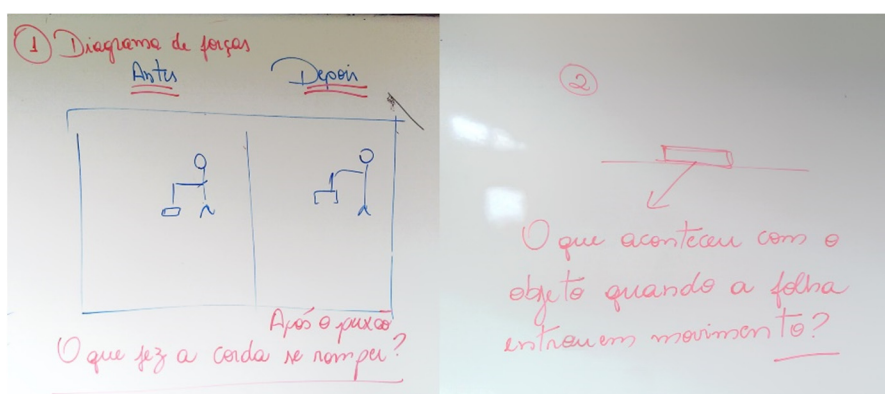 1 Diagrama de forças
Antes Depois
Após o puxão
O que fez a corda se romper?
2
O que aconteceu com o
objeto quando a folha
entrou em movimento?